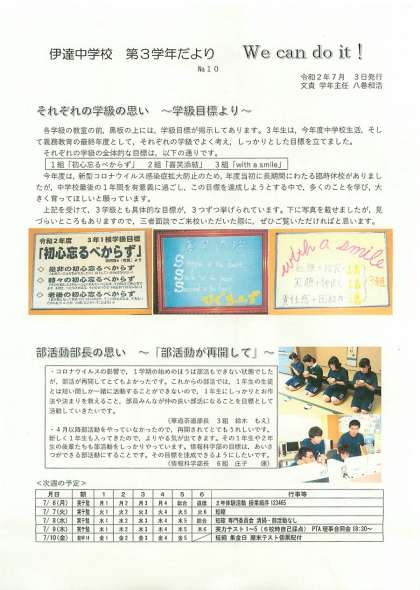 伊達中学校 第3学年だより We can do it!
№10
令和2年7月 3日発行
文責 学年主任 八巻和浩
それぞれの学級の思い ~学級目標より~
各学級の教室の前、黒板の上には、学級目標が掲示してあります。3年生は、今年度中学校生活、そし
て義務教育の最終年度として、それぞれの学級でよく考え、しっかりとした目標を立てました。
それぞれの学級の全体的な目標は、以下の通りです。
1組「初心忘るべからず」 2組「喜笑添結」 3組「with a smile」
今年度は、新型コロナウイルス感染症拡大防止のため、年度当初に長期間にわたる臨時休校がありまし
たが、中学校最後の1年間を有意義に過ごし、この目標を達成しようとする中で、多くのことを学び、大
きく育ってほしいと願っています。
上記を受けて、3学級とも具体的な目標が、3つずつ挙げられています。下に写真を載せましたが、見
づらいところもありますので、三者面談でご来校いただいた際に、ぜひご覧いただければと思います。
令和2年度 3年1組学級目標
「初心忘るべからず」
是非の初心忘るべからず
時々の初心忘るべからず
老後の初心忘るべからず
with a smile
部活動部長の思い ~「部活動が再開して」~
・コロナウイルスの影響で、1学期の始めのほうは部活もできない状態でした
が、部活が再開してとてもよかったです。これからの部活では、1年生の生徒
とは短い間しか一緒に活動することができないので、1年生にしっかりとお作
法や決まりを教えること、部員みんなが仲の良い部活になることを目標として
活動していきたいです。
(茶道部長 3組 鈴木 もえ)
・4月以降部活動をやっていなかったので、再開されてとてもうれしいです。
新しく1年生も入ってきたので、よりやる気が出てきます。その1年生や2年
生の後輩たちも部活動をしっかりやっています。情報科学部の目標は、あいさ
つができる部活動にすることです。その目標を達成できるようにしたいです。
(情報科学部長 6組 庄子 蓮)
<次週の予定>
月日 朝 1 2 3 4 5 6 行事等
7/ 6(月) 実予塾 月1 月2 月3 月4 総合 道徳 2年体験活動 授業順序123465
7/ 7(火) 実予塾 火1 火2 火3 火4 火5 火6 短縮
7/ 8(水) 実予塾 水1 水2 水3 水4 水5 総合 短縮 専門委員会 清掃・部活動なし
7/ 9(木) 実予塾 木2 木3 木4 木5 木6 実力テスト1~5(6校時自己採点) PTA理事合同会18:30~
7/10(金) 金2 金3 金4 金5 短縮 集金日 期末テスト個票配付